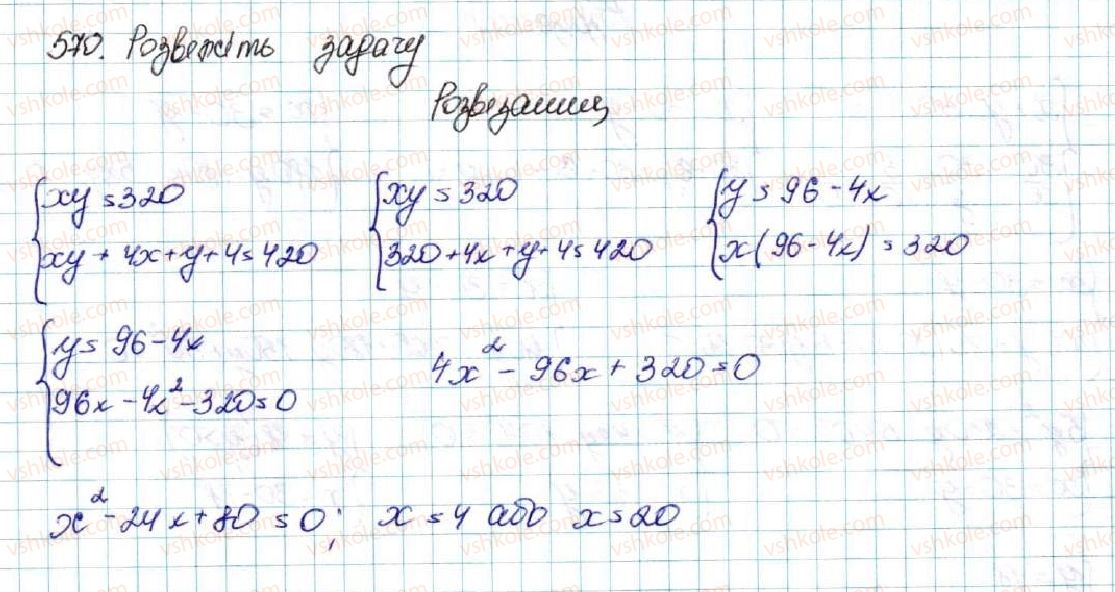 570. Розвежіть задачу
Розвезання
xy = 320
xy + 4x + y + 4 = 420
xy = 320
320 + 4x + y + 4 = 420
y = 96 - 4x
x(96 - 4x) = 320
y = 96 - 4x
96x - 4x² - 320 = 0
4x² - 96x + 320 = 0
x² - 24x + 80 = 0; x = 4 або x = 20